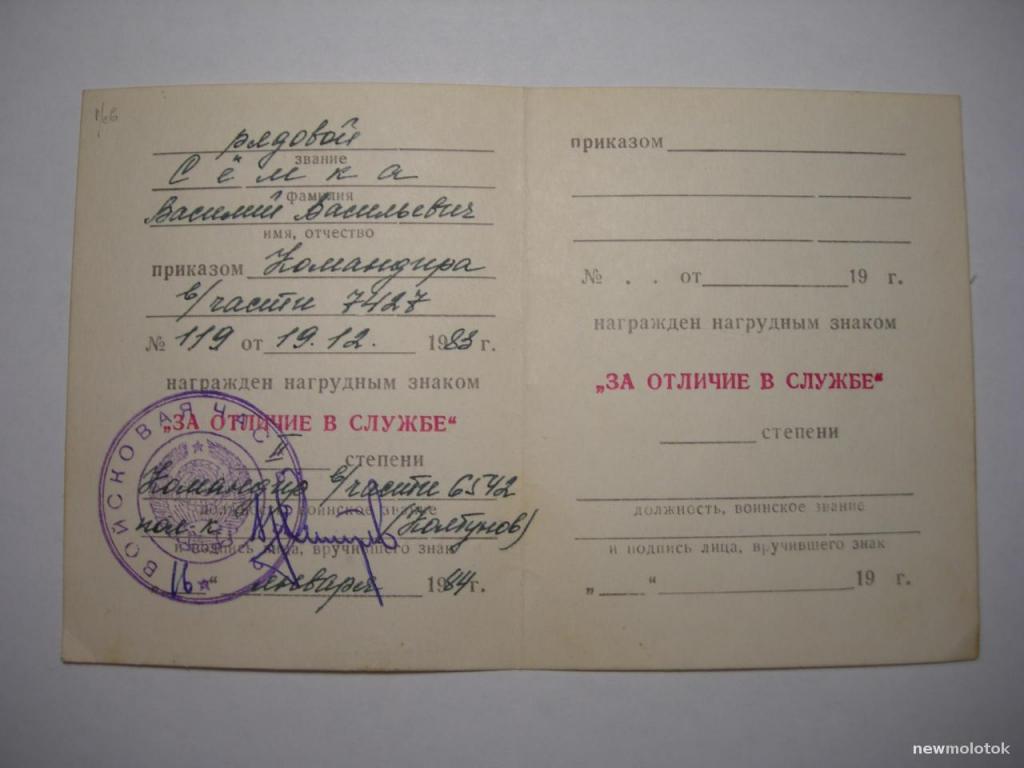 рядовой
звание
Сёмка
фамилия
Василий Васильевич
имя, отчество
приказом Командира
в/части 7427
№ 119 от 19.12. 1983 г.
награжден нагрудным знаком
„ЗА ОТЛИЧИЕ В СЛУЖБЕ“
II степени
Командир в/части 6542
должность, воинское звание
пол-к (Колтунов)
и подпись лица, вручившего знак
16 “ января 1984 г.
ВОЙСКОВАЯ ЧАСТЬ
приказом
№ . . от 19 г.
награжден нагрудным знаком
„ЗА ОТЛИЧИЕ В СЛУЖБЕ“
степени
должность, воинское звание
и подпись лица, вручившего знак
„ “ 19 г.
newmolotok